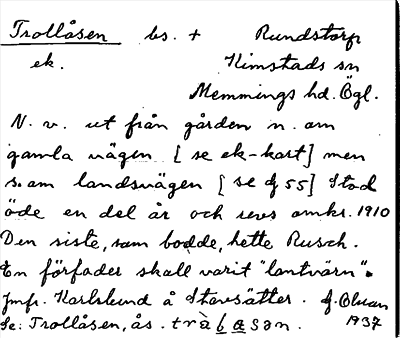 Trollåsen bs. + Rundstorp
ek. Kimstads sn
Memmings hd. Ögl.
N. v. ut från gården n. om
gamla vägen [se ek-kart] men
s. om landsvägen [se gj 55] Stod
öde en del år och revs omkr. 1910
Den siste, som bodde, hette Rusch.
En förfader skall varit "lantvärn".
Jmfr. Karlslund å Stavsätter.
Se: Trollåsen, ås. 1937